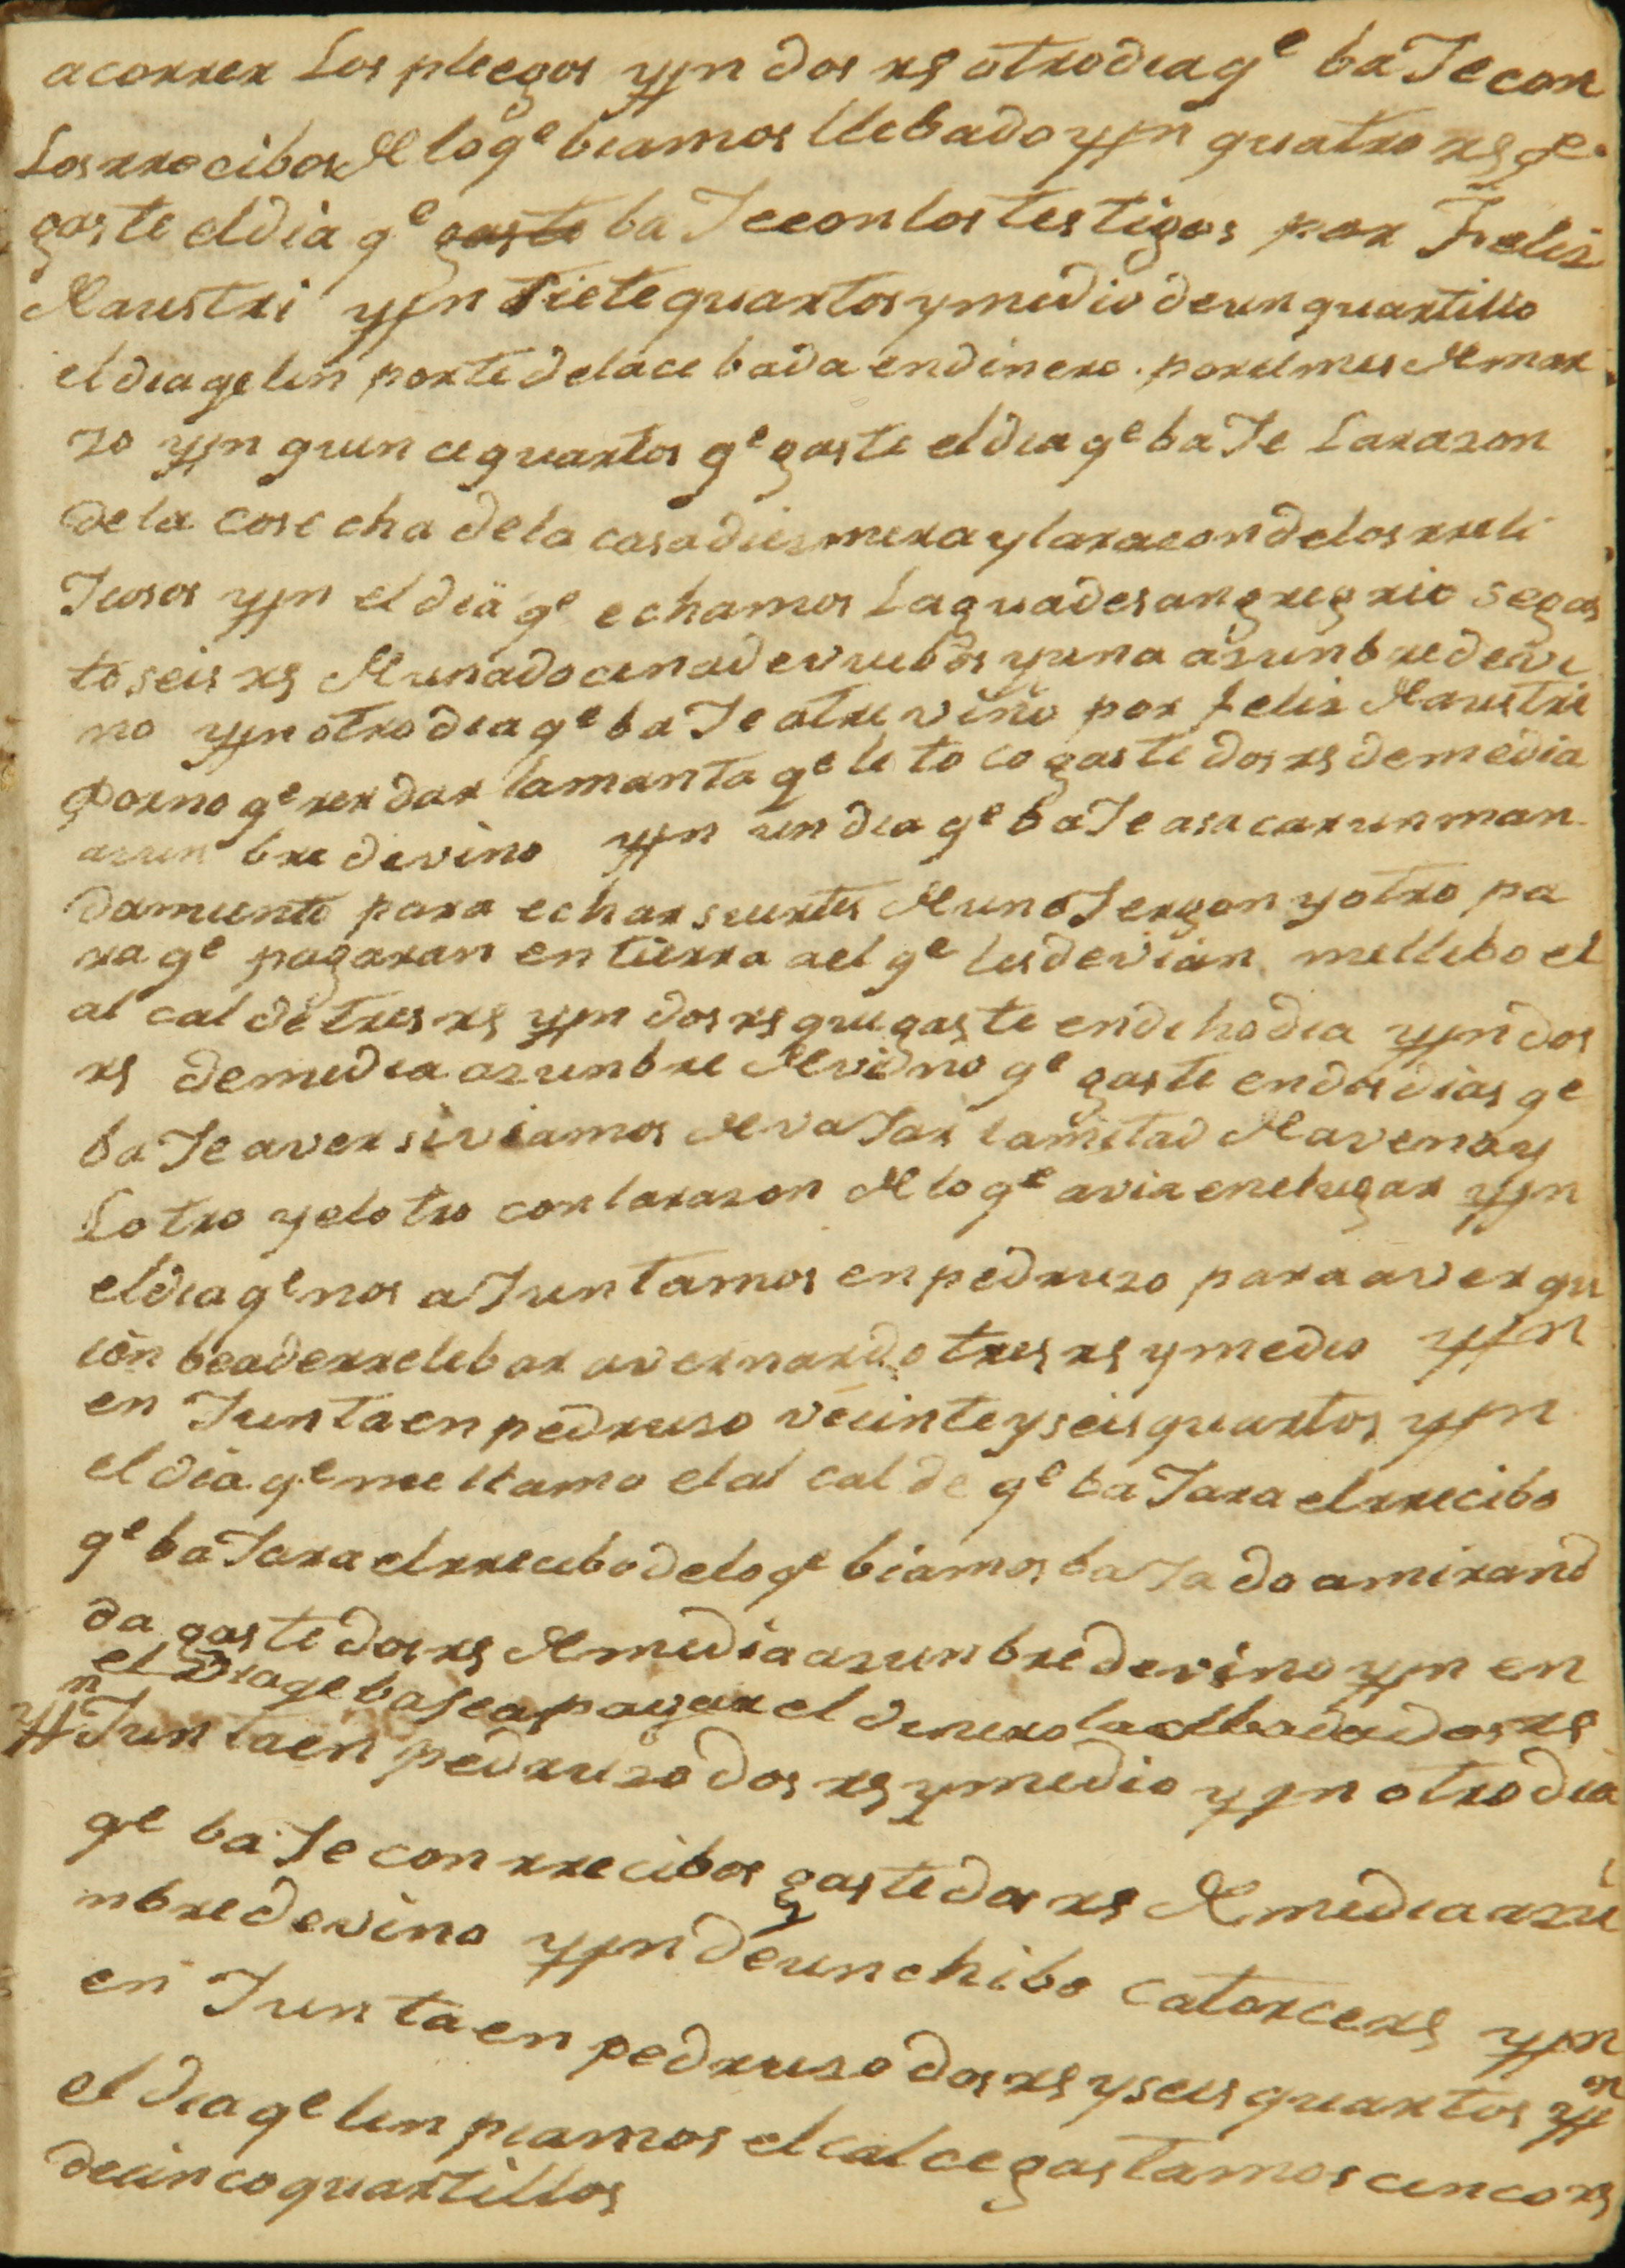 acorrer Los pleegos yjn dos rs otrodia qe baJe con
Los rrecibos de lo qe biamos llebado yjn quatro rs qe
gaste eldia qe gaste baJe con los testigos por Felis
de austri yjn siete quartos y medio de un quartillo
el dia qe lin porte de la cebada en dinero. por el mes de mar
zo yjn quince quartos qe gaste el dia qe baJe La razon
de la cosecha de la casa diezmera y la razon de los rreli
Jiosos yjn el dia qe echamos La gua de san gregrio se gas
to seis rs de una docena de vuebos y una azunbre de vi
no yjn otro dia qe baJe otre viño por felis de austri
por no qerer dar la manta qe le toco gaste dos rs de media
azunbre de vino yjn un dia qe baJe a sacar un man
damiento para echar suertes de uno Jergon y otro pa
ra qe pagaran en tierra a el qe les devian me llebo el
alcalde tres rs yjn dos rs que gaste en dicho dia yjn dos
rs de media azunbre de vino qe gaste en dos dias qe
baJe a ver si viamos de vaJar la mitad de avena y
Lotro y elotro con la razon de lo qe avia en el lugar yjn
el dia qe nos aJuntamos en pedruzo para a ver qu
ien bea de rrelebar a vernardo tres rs y medio yjn
en Junta en pedruzo veinte y seis quartos yjn
el dia qe me llamo el alcalde qe baJara el rrecibo
qe baJara el rrecibo de lo qe biamos baJado a mirand
da gaste dos rs de media azunbre de vino yjn en
el Dia qe baJe a pagar el dinero la cebada dos rs
yjn Junta en pedruzo dos rs y medio yjn otro dia
qe baJe con rrecibos gaste dos rs de media azu
nbre de vino yjn de un chibo catorce rs yjn
en Junta en pedruzo dos rs y seis quartos yjn
el dia qe linpiamos el calce gastamos cinco rs
de cinco quartillos